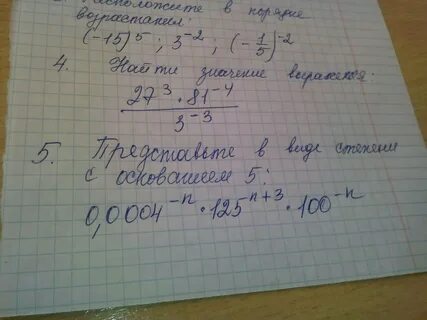 Расположите в порядке
возрастания:
(-15)⁵ ; 3⁻² ; (-1/5)⁻²
4. Найти значение выражения.
27³ · 81⁻⁴
3⁻³
5. Представьте в виде степени
с основанием 5:
0,0004⁻ⁿ · 125ⁿ⁺³ · 100⁻ⁿ